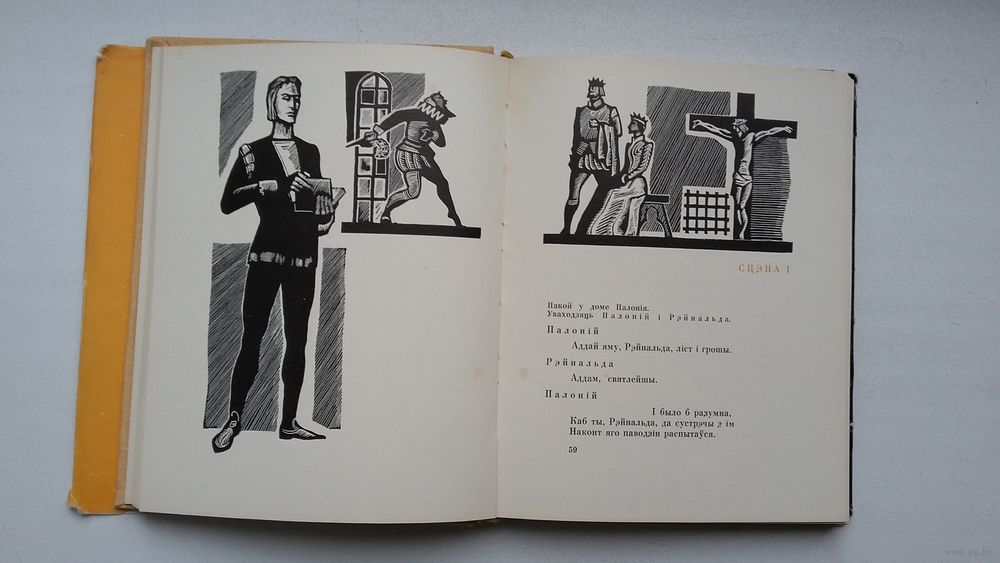 СЦЭНА I
Пакой у доме Палонія.
Уваходзяць Палоній і Рэйнальда.
Палоній
Аддай яму, Рэйнальда, ліст і грошы.
Рэйнальда
Аддам, святлейшы.
Палоній
І было б разумна,
Каб ты, Рэйнальда, да сустрэчы з ім
Наконт яго паводзін распытаўся.
59